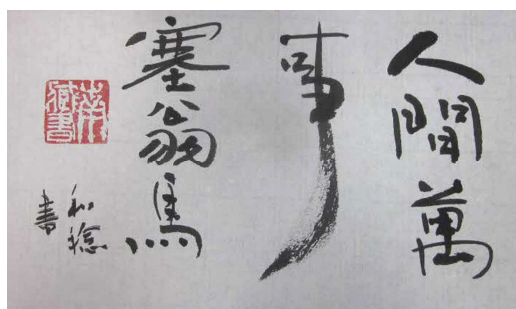 人間萬
事
塞翁馬
和稔
書